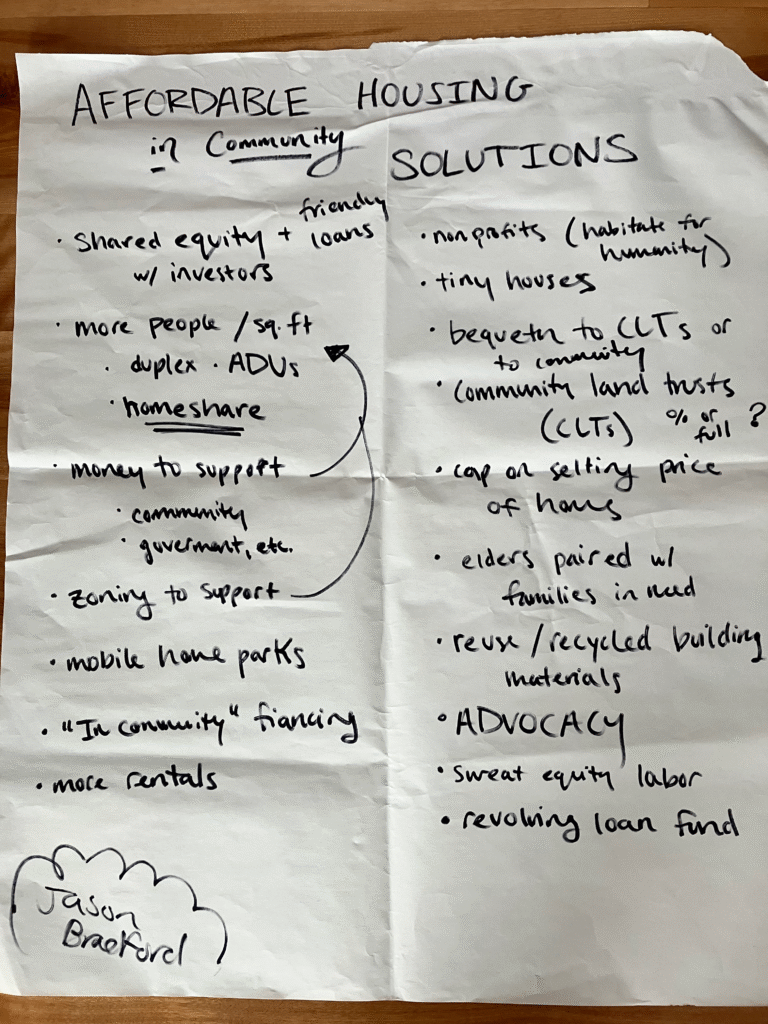 AFFORDABLE HOUSING
in Community
SOLUTIONS
· Shared equity + friendly loans
w/ investors
· more people / sq.ft
· duplex · ADUs
· homeshare
· money to support
· community
· goverment, etc.
· zoning to support
· mobile home parks
· "In community" fiancing
· more rentals
Jason
· nonprofits (habitate for
humanity)
· tiny houses
· to CLTs or
to community
· Community land trusts
(CLTs) % or full ?
· cap on selling price
of homes
· elders paired w/
families in need
· reuse / recycled building
materials
· ADVOCACY
· sweat equity labor
· revolving loan fund